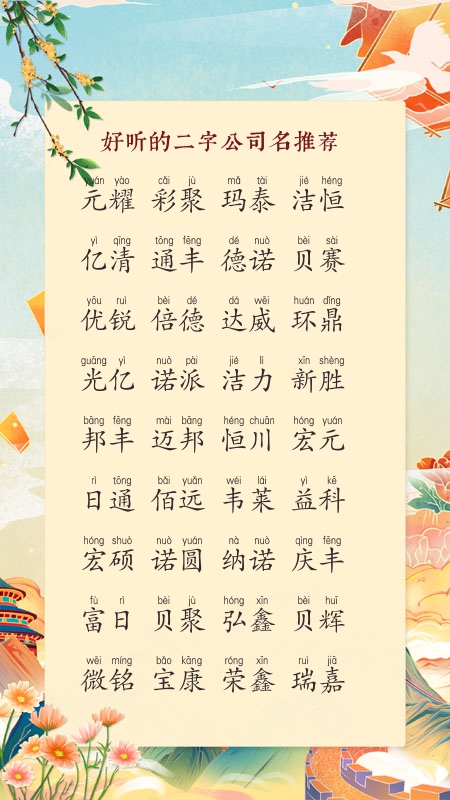 好听的二字公司名推荐
yuán yào cǎi jù mǎ tài jié héng
元耀 彩聚 玛泰 洁恒
yì qīng tōng fēng dé nuò bèi sài
亿清 通丰 德诺 贝赛
yōu ruì bèi dé dá wēi huán dǐng
优锐 倍德 达威 环鼎
guāng yì nuò pài jié lì xīn shèng
光亿 诺派 洁力 新胜
bāng fēng mài bāng héng chuān hóng yuán
邦丰 迈邦 恒川 宏元
rì tōng bǎi yuǎn wéi lái yì kē
日通 佰远 韦莱 益科
hóng shuò nuò yuán nà nuò qìng fēng
宏硕 诺圆 纳诺 庆丰
fù rì bèi jù hóng xīn bèi huī
富日 贝聚 弘鑫 贝辉
wēi míng bǎo kāng róng xīn ruì jiā
微铭 宝康 荣鑫 瑞嘉